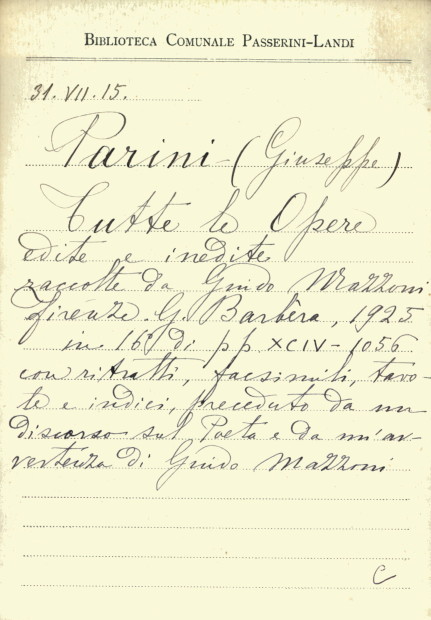 BIBLIOTECA COMUNALE PASSERINI-LANDI
31.VII.15.
Parini - (Giuseppe)
Tutte le Opere
edite e inedite
raccolte da Guido Mazzoni.
Firenze. G. Barbèra, 1925
in 16° di pp XCIV-1056
con ritratti, facsimili, tavo-
le e indici, preceduto da un
Discorso sul Poeta e da un'av-
vertenza di Guido Mazzoni
C